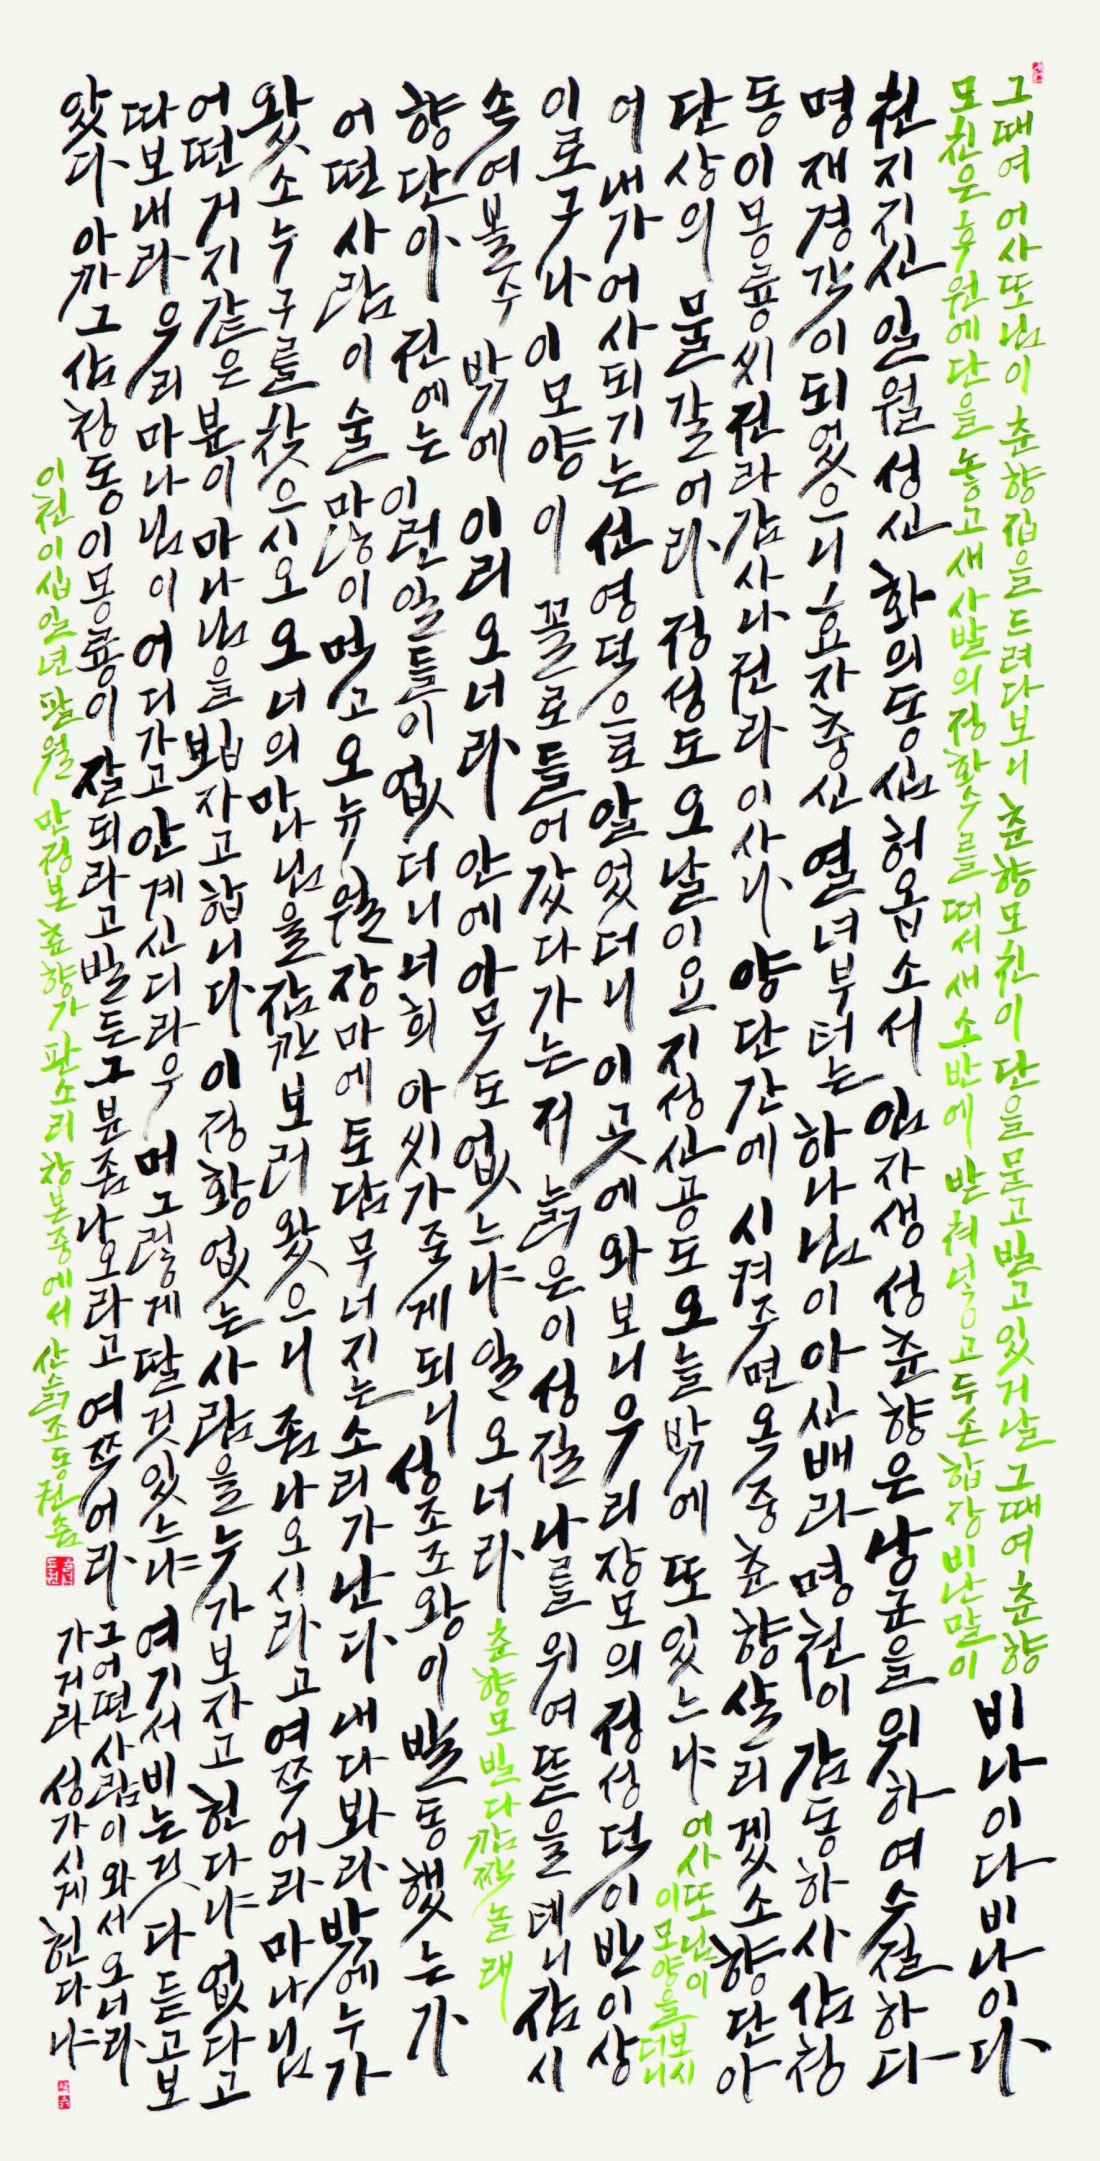 그때여 어사또님이 춘향집을 드려다보니 춘향모친이 단을 묻고 빌고있거날 그때여 춘향
모친은 후원에 단을 놓고 새 사발의 정화수를 떠서 새 소반에 받쳐 넣고 두손 합장 비난말이
비나이다 비나이다
천지지신 일월성신 화의동심 허옵소서 임자생 성춘향은 낭군을 위하여 수절하다
명재경각이 되었으니 효자충신 열녀부터는 하나님이 아신배라 명천이 감동하사 삼청
동 이몽룡씨 전라감사나 전라이사나 양단간에 시켜주면 옥중춘향 살리겠소 향단아
단상의 물 갈어라 정성도 오날이요 지성신공도 오늘밖에 또 있느냐
어사또님이
이모양을 보시더니
어 내가 어사되기는 선영덕으로 알었더니 이곳에 와보니 우리 장모의 정성덕이 반이상
이로구나 이모양 이 꼴로 들어갔다가는 저 늙은이 성질 나를 위여 뜯을 테니 잠시
속여볼 수 밖에 이리 오너라 안에 아무도 없느냐 일오너라
춘향모 빌다 깜짝 놀래
향단아 전에는 이런일들이 없더니 너희 아씨가 죽게되니 성조조왕이 발동했는가
어떤 사람이 술 많이 먹고 오뉴월 장마에 토담 무너지는 소리가 난다 내다봐라 밖에 누가
왔소 누구를 찾으시오 오 너의 마나님을 잠깐 보러 왔으니 좀 나오시라고 여쭈어라 마나님
어떤 거지같은 분이 마나님을 뵙자고 합니다 이 정황 없는 사람을 누가 보자고 현다냐 없다고
따보내라 우리 마나님이 어디가고 안계신디라우 머 그렇게 딸것있느냐 여기서 비는것 다 듣고보
았다 아까 그 삼청동 이몽룡이 잘되라고 빌든 그분 좀 나오라고 여쭈어라
그 어떤 사람이 와서 오너라
가거라 성가시게 현다냐
이천이십일년 팔월 만정본 춘향가 판소리 창본중에서 산늙 조동천 씀